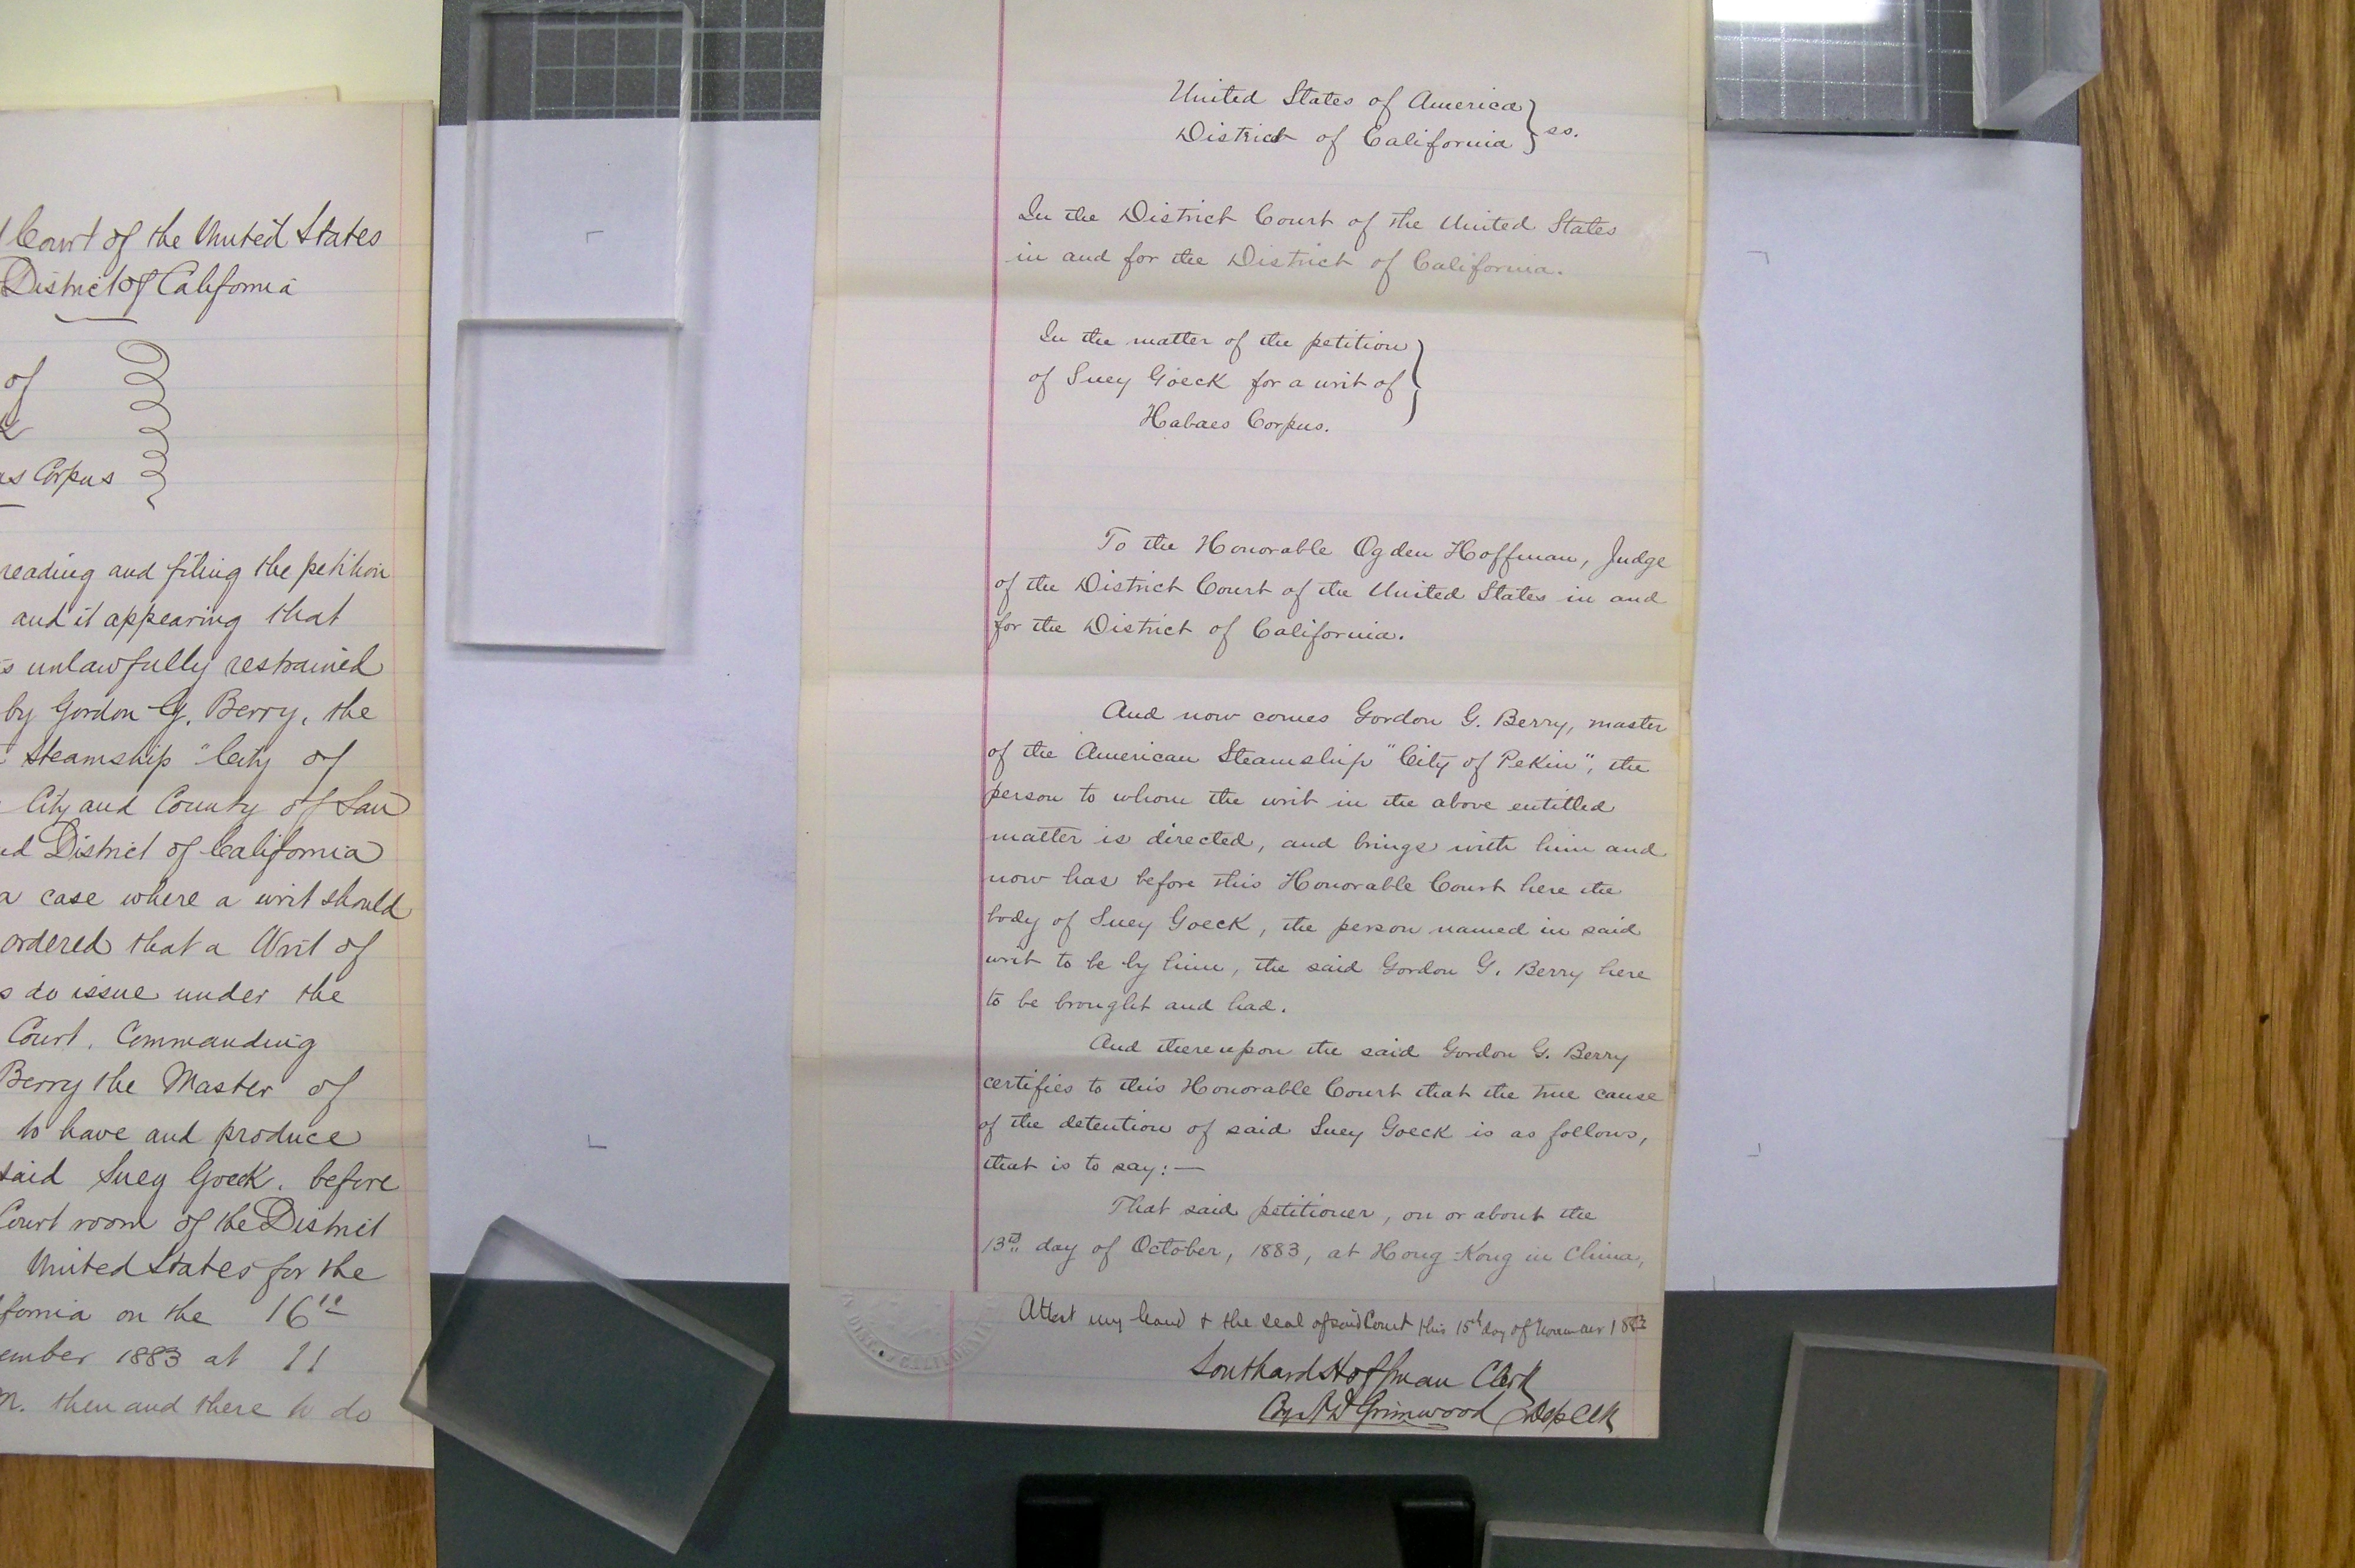 Court of the United States
District of California
of
as Corpus
reading and filing the petition
and it appearing that
unlawfully restrained
by Gordon G. Berry, the
Steamship "City of
City and County of San
District of California
a case where a writ should
ordered that a Writ of
do issue under the
Court. Commanding
Berry the Master of
to have and produce
said Suey Goeck. before
Court room of the District
United States for the
fornia on the 16th
ember 1883 at 11
M. then and there to do
United States of America
District of California } ss.
In the District Court of the United States
in and for the District of California.
In the matter of the petition
of Suey Goeck for a writ of
Habaes Corpus.
To the Honorable Ogden Hoffman, Judge
of the District Court of the United States in and
for the District of California.
And now comes Gordon G. Berry, master
of the American Steamship "City of Pekin", the
person to whom the writ in the above entitled
matter is directed, and brings with him and
now has before this Honorable Court here the
body of Suey Goeck, the person named in said
writ to be by him, the said Gordon G. Berry here
to be brought and had.
And thereupon the said Gordon G. Berry
certifies to this Honorable Court that the true cause
of the detention of said Suey Goeck is as follows,
that is to say:—
That said petitioner, on or about the
13th day of October, 1883, at Hong-Kong in China,
Attest my hand & the seal of said Court this 15th day of November 1883
Southard Hoffman Clerk
Grimwood Dep Clk